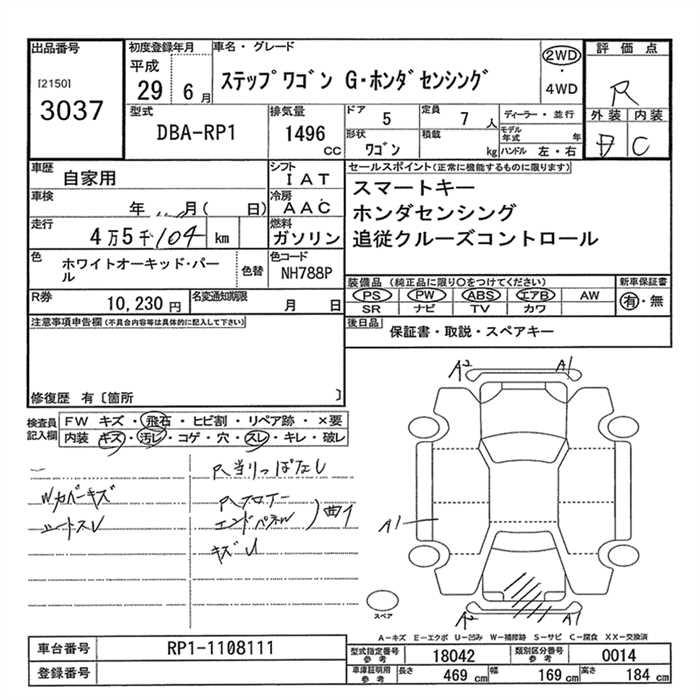 出品番号
[2150]
3037
初度登録年月
平成
29 6月
車名・グレード
ステップワゴン G・ホンダセンシング
2WD
・
4WD
評価点
R
外装 内装
C
型式
DBA-RP1
排気量
1496
CC
ドア
5
定員
7 人
形状
ワゴン
積載
kg
ディーラー・並行
モデル年式 年
ハンドル 左・右
車歴
自家用
シフト
IAT
車検
年 月( 日)
冷房
AAC
走行
4万5千104 km
燃料
ガソリン
色
ホワイトオーキッド・パール
色替
色コード
NH788P
R券
10,230 円
名変通知期限
月 日
セールスポイント(正常に機能するものに限ります)
スマートキー
ホンダセンシング
追従クルーズコントロール
装備品(純正品に限り○をつけてください)
PS PW ABS エアB AW
SR ナビ TV カワ
新車保証書
有・無
後日品
保証書・取説・スペアキー
注意事項申告欄(不具合内容等は具体的に記入して下さい)
修復歴 有〔箇所 〕
検査員記入欄
FW キズ・飛石・ヒビ割・リペア跡・×要
内装 キズ・汚レ・コゲ・穴・スレ・キレ・破レ
Wカバーキズ
シートスレ
R当りっぱなし
Rフロアー
エンドパネル
曲イ
キズU
A2
A1
A1
A2
A1
スペア
A−キズ E−エクボ U−凹み W−補修跡 S−サビ C−腐食 XX−交換済
車台番号
RP1-1108111
登録番号
型式指定番号
参考
18042
類別区分番号
参考
0014
車庫証明用
参考
長さ
469 cm
幅
169 cm
高さ
184 cm